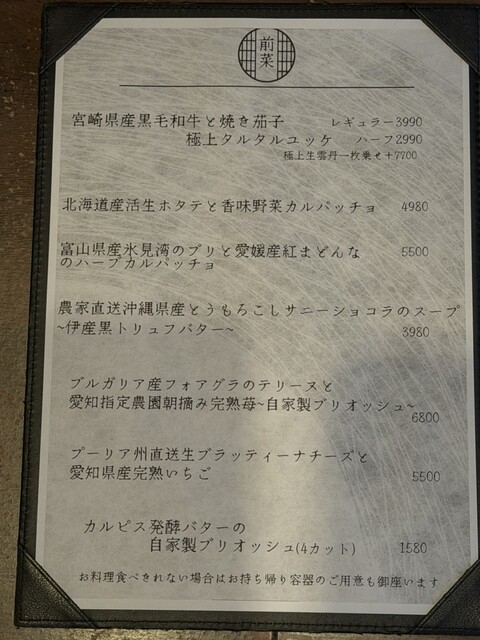 前菜
宮崎県産黒毛和牛と焼き茄子 レギュラー3990
極上タルタルユッケ ハーフ2990
極上生雲丹一枚乗せ+7700
北海道産活生ホタテと香味野菜カルパッチョ 4980
富山県産氷見湾のブリと愛媛産紅まどんな 5500
のハーブカルパッチョ
農家直送沖縄県産とうもろこしサニーショコラのスープ
~伊産黒トリュフバター~ 3980
ブルガリア産フォアグラのテリーヌと
愛知指定農園朝摘み完熟苺~自家製ブリオッシュ~
6800
プーリア州直送生ブラッティーナチーズと
愛知県産完熟いちご 5500
カルピス発酵バターの
自家製ブリオッシュ(4カット) 1580
お料理食べきれない場合はお持ち帰り容器のご用意も御座います